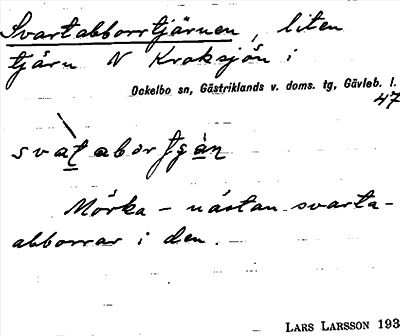 Svartabborrtjärnen, liten
tjärn N Kroksjön i
Ockelbo sn, Gästriklands v. doms. tg, Gävleb. l.
47
Mörka - nästan svarta-
abborrar i den.
LARS LARSSON 193